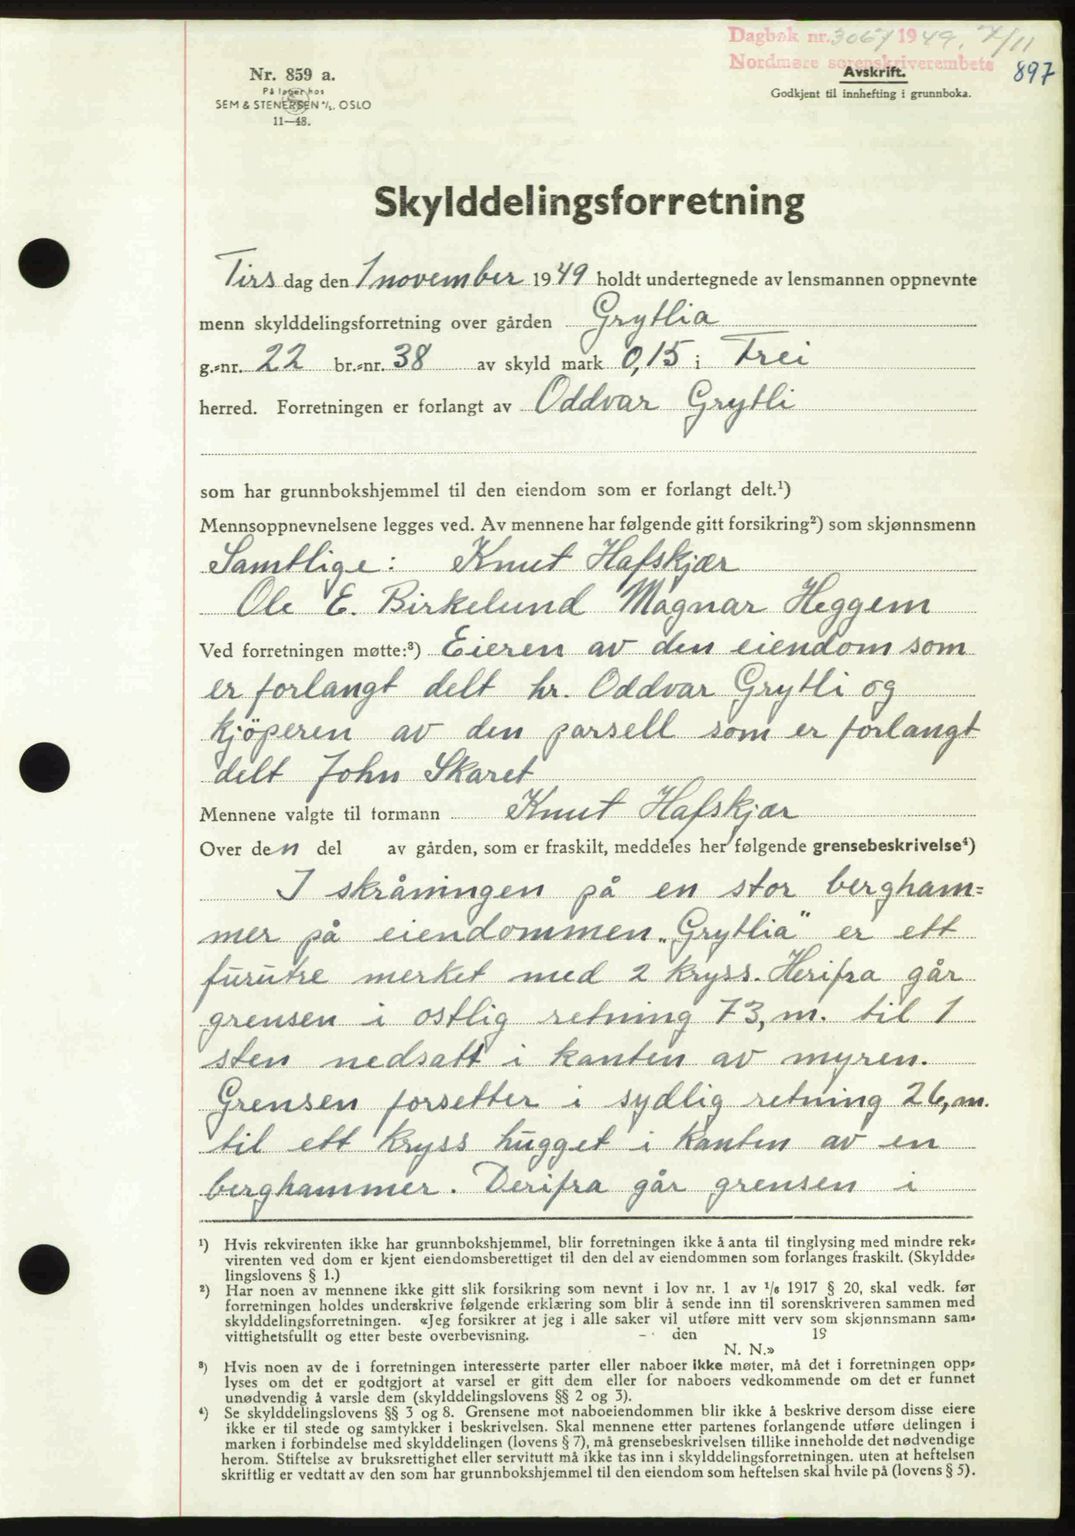 Dagbok nr. 3067 1949. 7/11
Nordmøre sorenskriverembete
897
Nr. 859 a.
På lager hos
SEM & STENERSEN A/S. OSLO
11—48.
Avskrift.
Godkjent til innhefting i grunnboka.
Skylddelingsforretning
Tirs dag den 1 november 1949 holdt undertegnede av lensmannen oppnevnte
menn skylddelingsforretning over gården Grytlia
g.-nr. 22 br.-nr. 38 av skyld mark 0,15 i Frei
herred. Forretningen er forlangt av Oddvar Grytli
som har grunnbokshjemmel til den eiendom som er forlangt delt.¹)
Mennsoppnevnelsene legges ved. Av mennene har følgende gitt forsikring²) som skjønnsmenn
Samtlige: Knut Hafskjær
Ole E. Birkelund Magnar Heggem
Ved forretningen møtte:³) Eieren av den eiendom som
er forlangt delt hr. Oddvar Grytli og
kjöperen av den parsell som er forlangt
delt John Skaret
Mennene valgte til formann Knut Hafskjær
Over den del av gården, som er fraskilt, meddeles her følgende grensebeskrivelse⁴)
I skråningen på en stor bergham=
mer på eiendommen „Grytlia" er ett
furutre merket med 2 kryss. Herifra går
grensen i ostlig retning 73,m. til 1
sten nedsatt i kanten av myren.
Grensen forsetter i sydlig retning 26,m.
til ett kryss hugget i kanten av en
berghammer. Derifra går grensen i
¹) Hvis rekvirenten ikke har grunnbokshjemmel, blir forretningen ikke å anta til tinglysing med mindre rek-
virenten ved dom er kjent eiendomsberettiget til den del av eiendommen som forlanges fraskilt. (Skyldde-
lingslovens § 1.)
²) Har noen av mennene ikke gitt slik forsikring som nevnt i lov nr. 1 av 1/6 1917 § 20, skal vedk. før
forretningen holdes underskrive følgende erklæring som blir å sende inn til sorenskriveren sammen med
skylddelingsforretningen. «Jeg forsikrer at jeg i alle saker vil utføre mitt verv som skjønnsmann sam-
vittighetsfullt og etter beste overbevisning. den 19
N. N.»
³) Hvis noen av de i forretningen interesserte parter eller naboer ikke møter, må det i forretningen opp-
lyses om det er godtgjort at varsel er gitt dem eller for naboers vedkommende om det er funnet
unødvendig å varsle dem (skylddelingslovens §§ 2 og 3).
⁴) Se skylddelingslovens §§ 3 og 8. Grensene mot naboeiendommen blir ikke å beskrive dersom disse eiere
ikke er til stede og samtykker i beskrivelsen. Skal mennene etter partenes forlangende utføre delingen i
marken i forbindelse med skylddelingen (lovens § 7), må grensebeskrivelsen tillike inneholde det nødvendige
herom. Stiftelse av bruksrettighet eller servitutt må ikke tas inn i skylddelingsforretningen. uten at heftelsen
skriftlig er vedtatt av den som har grunnbokshjemmel til den eiendom som heftelsen skal hvile på (lovens § 5).